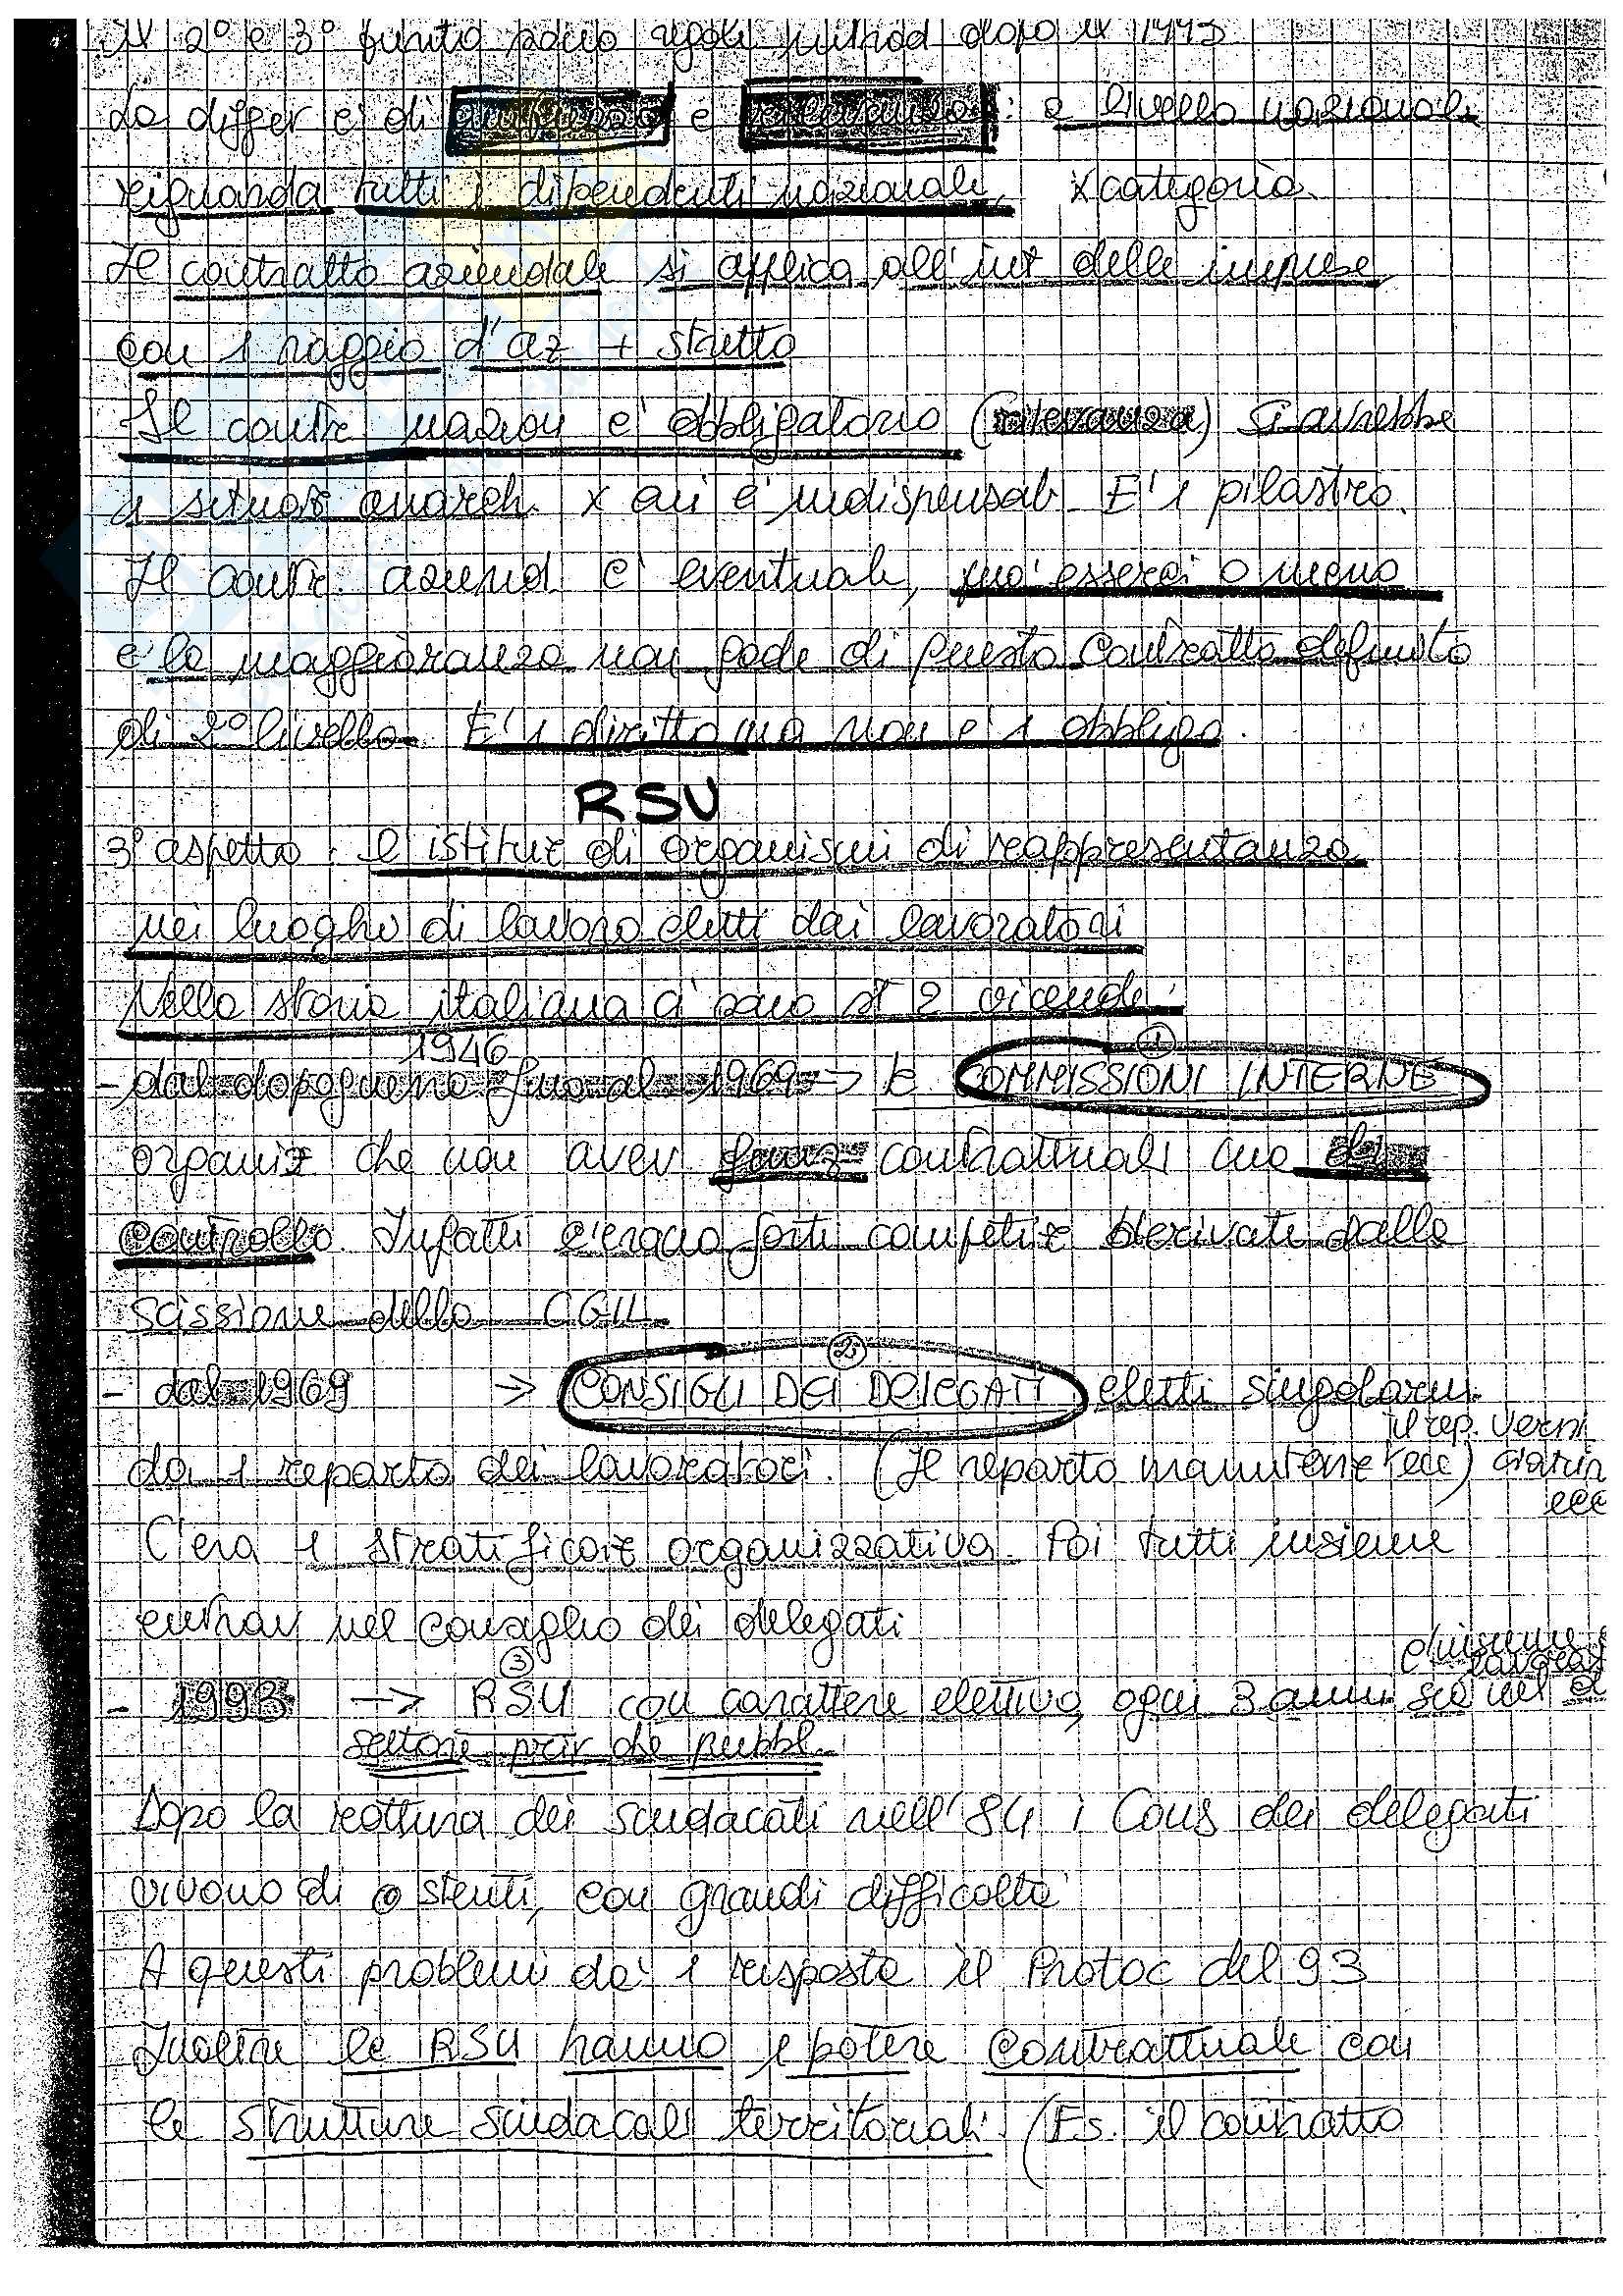 2° e 3° punto sono regole introd dopo il 1993
La differ è di ampiezza e rilevanza: a livello nazionale
riguarda tutti i dipendenti nazionale, x categoria.
Il contratto aziendale si applica all'int delle imprese
con 1 raggio d'az + stretto
Il contr nazion è obbligatorio (rilevanza) si avrebbe
1 situaz anarch. x cui è indispensab. E' 1 pilastro.
Il contr. aziend. è eventuale, può esserci o meno
e la maggioranza non gode di questo contratto definito
di 2° livello. E' 1 diritto ma non è 1 obbligo.
RSU
3° aspetto: l istituz di organismi di rappresentanza
nei luoghi di lavoro eletti dai lavoratori
Nella storia italiana ci sono st 2 vicende:
1946
①
- dal dopoguerra fino al 1969 → le COMMISSIONI INTERNE
organiz che non avev funz contrattuali ma di
controllo. Infatti c'erano forti competiz derivati dalla
scissione della CGIL.
②
- dal 1969 → CONSIGLI DEI DELEGATI eletti singolarm.
il rep. verni
da 1 reparto dei lavoratori. (Il reparto manutenz ecc)
ecc
C'era 1 stratificaz organizzativa. Poi tutti insieme
entrav nel consiglio dei delegati
③
- 1993 → RSU con carattere elettivo, ogni 3 anni sia nel
settore priv che pubbl.
Dopo la rottura dei sindacati nell'84 i Cons dei delegati
vivono di stenti, con grandi difficoltà
A questi problemi dà 1 risposta il Protoc del 93
Inoltre le RSU hanno potere contrattuale con
le strutture sindacali territoriali. (Es. il contratto